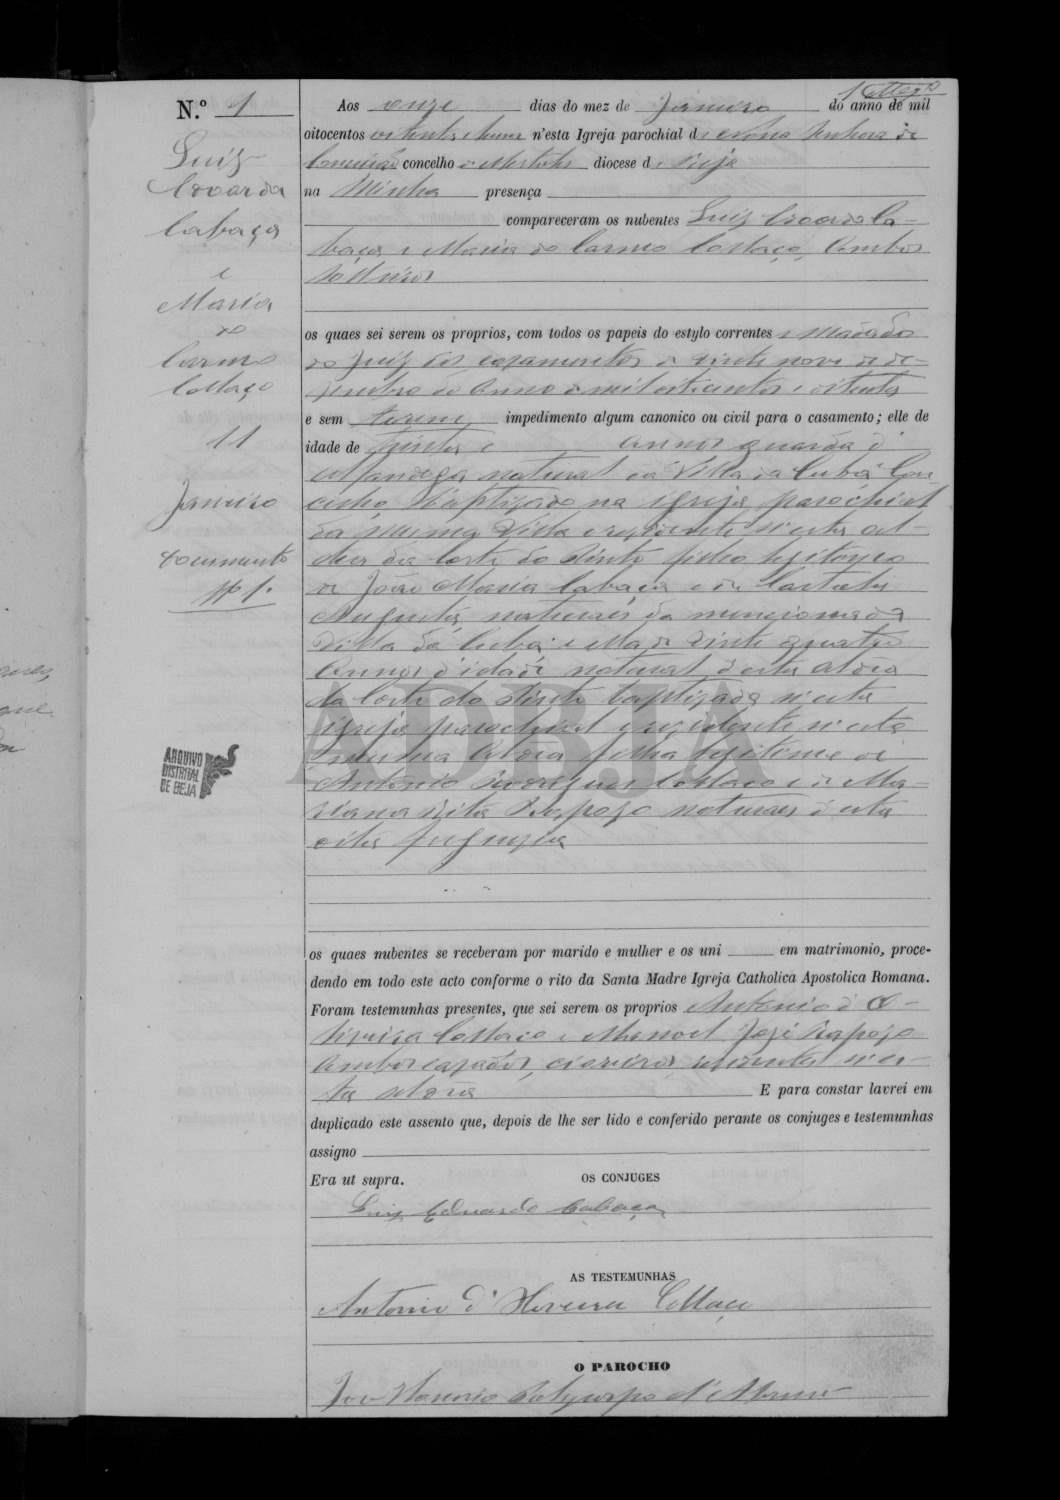 N.º 1
Luiz
Eduardo
Cabaça
e
Maria
do
Carmo
Collaço
11
Janeiro
Documento
nº 1.
Aos onze dias do mez de Janeiro do anno de mil
oitocentos oitenta e hum n'esta Igreja parochial de Nossa Senhora da
Conceição concelho de Mertola diocese de Beja
na Minha presença
compareceram os nubentes Luiz Eduardo Ca-
baça e Maria do Carmo Collaço, Ambos
solteiros
os quaes sei serem os proprios, com todos os papeis do estylo correntes e Mandado
do Juiz dos casamentos de vinte nove de de-
zembro do Anno de mil oitocentos e oitenta
e sem terem impedimento algum canonico ou civil para o casamento; elle de
idade de trinta e annos guarda d'
Alfandega natural da Villa da Cuba Con-
celho Baptizado na igreja parochial
da mesma Villa e residente n'esta al-
dea da Corte do Pinto filho legitimo
de João Maria Cabaça e de
Augusta, naturais da mencionada
Villa da Cuba: e ella de vinte quatro
Annos d'idade natural d'esta aldea
da Corte do Pinto baptizada n'esta
igreja parochial e residente n'esta
mesma Aldea filha legitima de
Antonio Rodrigues Collaço e de Ma-
riana Rita Rapozo naturaes d'esta
dita freguezia
os quaes nubentes se receberam por marido e mulher e os uni em matrimonio, proce-
dendo em todo este acto conforme o rito da Santa Madre Igreja Catholica Apostolica Romana.
Foram testemunhas presentes, que sei serem os proprios Antonio d'O-
liveira Collaço e Manoel José Rapozo
Ambos casados, residentes n'es-
ta aldea E para constar lavrei em
duplicado este assento que, depois de lhe ser lido e conferido perante os conjuges e testemunhas
assigno
Era ut supra.
OS CONJUGES
Luiz Eduardo Cabaça
AS TESTEMUNHAS
Antonio d'Oliveira Collaço
O PAROCHO
d'Abreu
ARQUIVO
DISTRITAL
DE BEJA
ADBJA